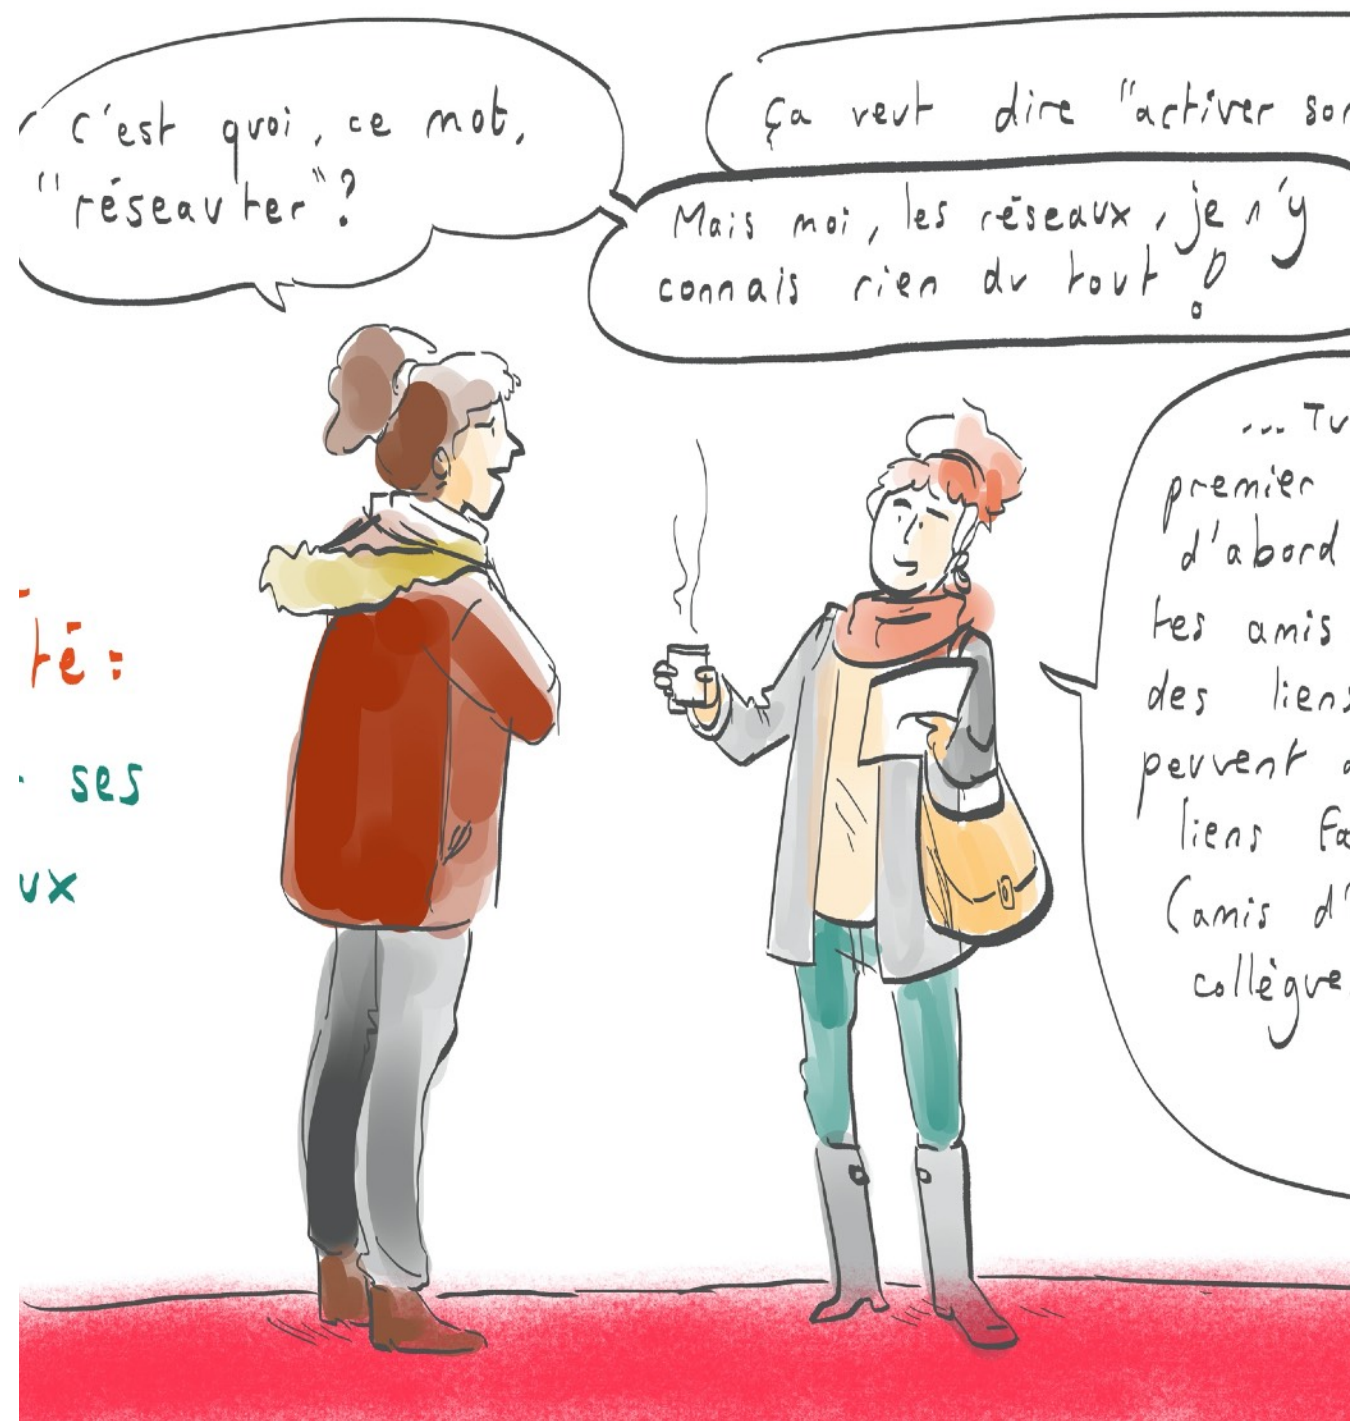 C'est quoi, ce mot,
"réseauter"?
ça veut dire "activer son
Mais moi, les réseaux, je n'y
connais rien du tout !
té :
ses
ux
... Tu
premier
d'abord
tes amis
des liens
peuvent
liens
(amis d'
collègue